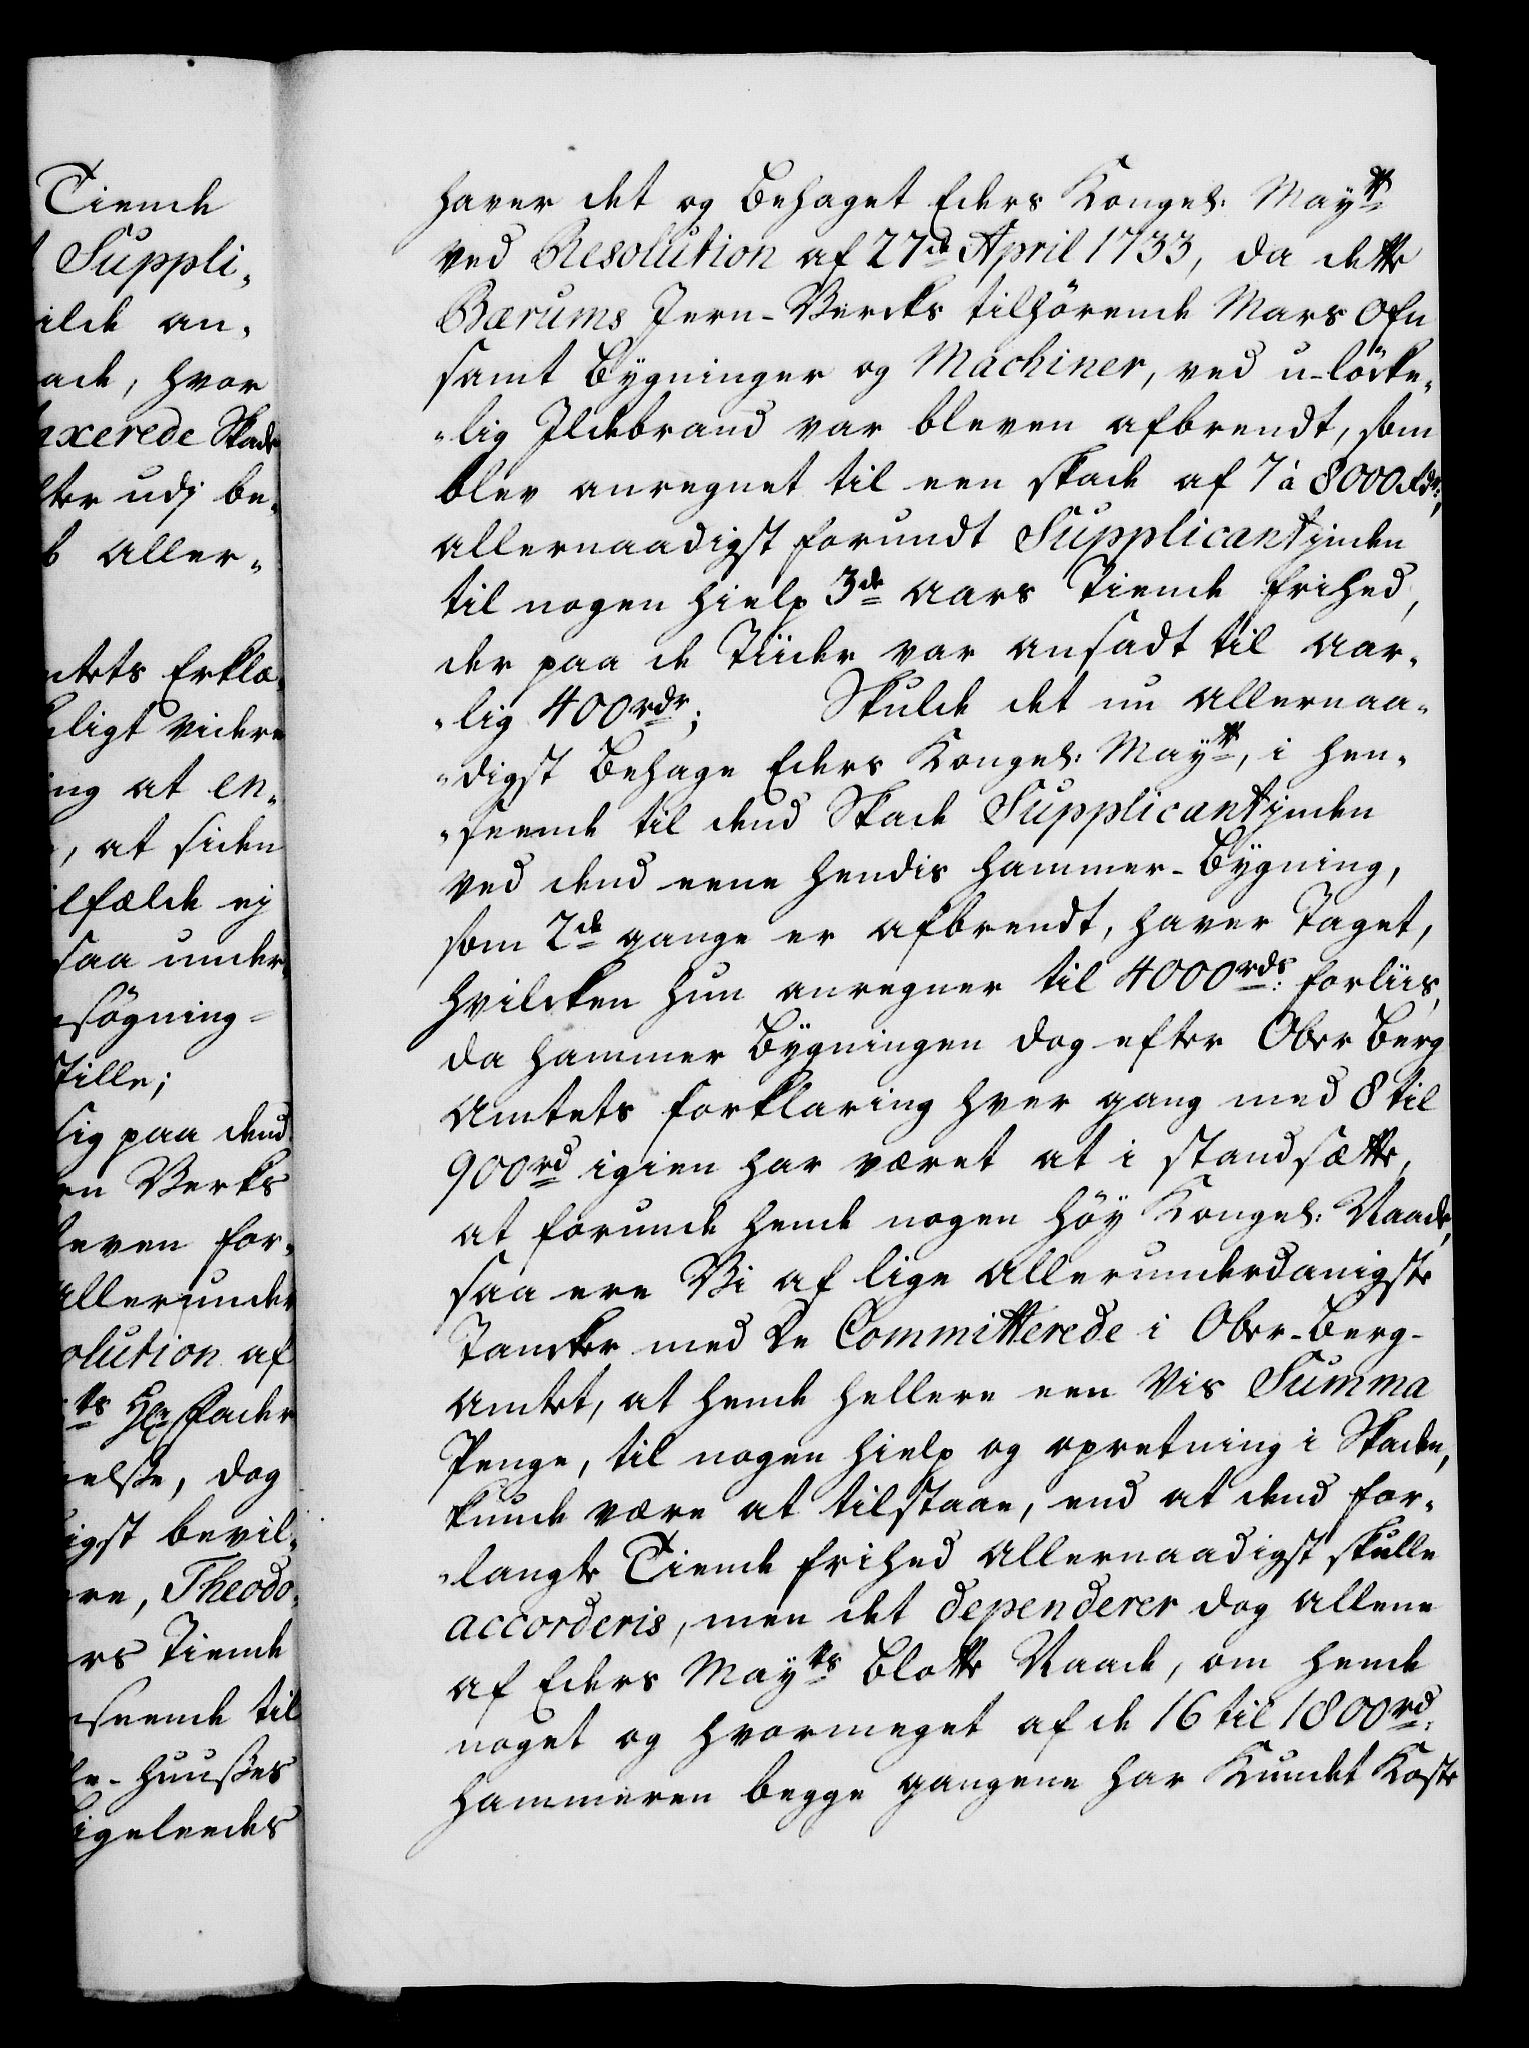 Tiende
Suppli-
ilde an-
ade, hvor
axerede Skade
ter udj be-
b aller-
mtets Erklæ-
eligt videre
ing at en-
, at siden
ilfælde ej
saa under-
nsögning-
Tille;
sig paa dend
en Verks
leven for-
allerunder
olution af
ts Hr Fader
else, dog
igst bevil-
re, Theodo-
rs Tiende
nseende til
le-Huuses
igeleedes
haver det og behaget Eders Kongel: Maytt
ved Resolution af 27de April 1733, da dette
Bærums Jern-Vercks tilhörende Mars Ofn
samt Bygninger og Machiner, ved u-löcke-
-lig Ildebrand var bleven afbrendt, som
blev anregnet til een skade af 7 à 8000 Rdr;
allernaadigst forundt Supplicantjnden
til nogen hielp 3de Aars Tiende frihed,
der paa de Tiider var ansadt til Aar-
-lig 400rdr; Skulde det nu Allernaa-
-digst behage Eders Kongel: Maytt, i hen-
-seende til dend Skade Supplicantjnden
ved dend eene hendis Hammer-Bygning,
som 2de gange er afbrendt, haver Taget,
hvilcken hun anregner til 4000rds: forliis,
da Hammer Bygningen dog efter Ober Berg
Amtets forklaring hver gang med 8 til
900rd igien har været at i standsætte,
at forunde hende nogen höy Kongel: Naade,
saa ere Vi af lige Allerunderdanigste
Tancker med De Committerede i Ober-Berg-
Amtet, at hende hellere een Vis Summa
Penge, til nogen hielp og opretning i Skaden,
kunde være at tilstaae, end at dend for-
-langte Tiende frihed Allernaadigst skulle
accorderis, men det dependerer dog allene
af Eders Mayts blotte Naade, om hende
noget og hvormeget af de 16 til 1800rd:
Hammeren begge gangene har Kundet Koste